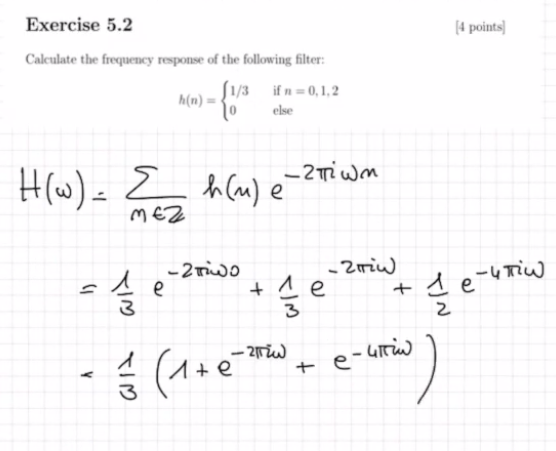 Exercise 5.2 [4 points]
Calculate the frequency response of the following filter:
h(n) = { 1/3 if n = 0, 1, 2
0 else
H(ω) = Σ_{n∈ℤ} h(n) e^{-2πiωn}
= 1/3 e^{-2πiω0} + 1/3 e^{-2πiω} + 1/2 e^{-4πiω}
= 1/3 (1 + e^{-2πiω} + e^{-4πiω})